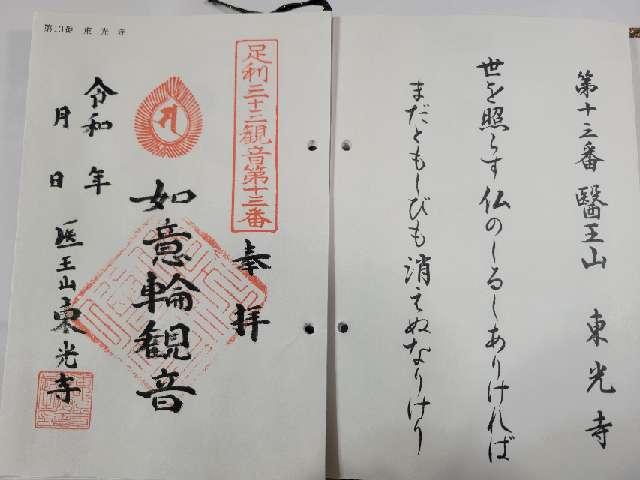 第十三番 醫王山 東光寺
世を照らす 仏のしるしありければ
まだともしびも 消えぬなりけり
第13番 東光寺
足利三十三観音第十三番
奉拝
如意輪観音
令和 年
月 日
医王山 東光寺